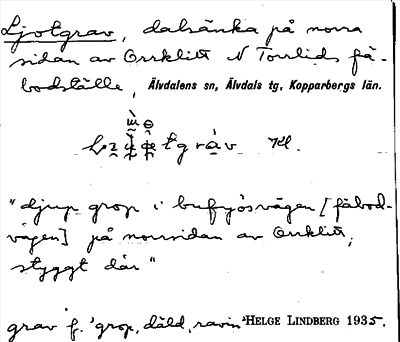 Ljotgrav, dalsänka på norra
sidan av Orrklitt N Torrlids fä-
bodställe, Älvdalens sn, Älvdals tg, Kopparbergs län.
"djup grop i bufyösvägen [fäbod-
vägen] på norrsidan av Orrklitt,
styggt där"
grav f. 'grop, däld, ravin' HELGE LINDBERG 1935.